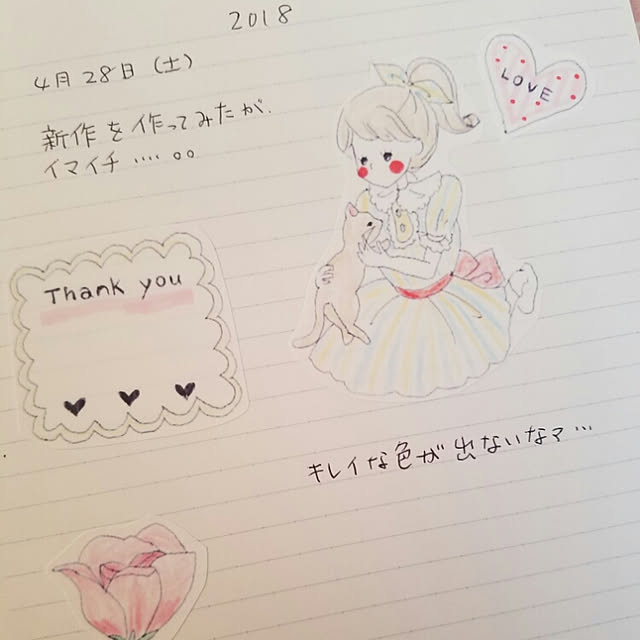 2018
4月28日(土)
新作を作ってみたが、
イマイチ....。。
LOVE
Thank you
キレイな色が出ないなァ...